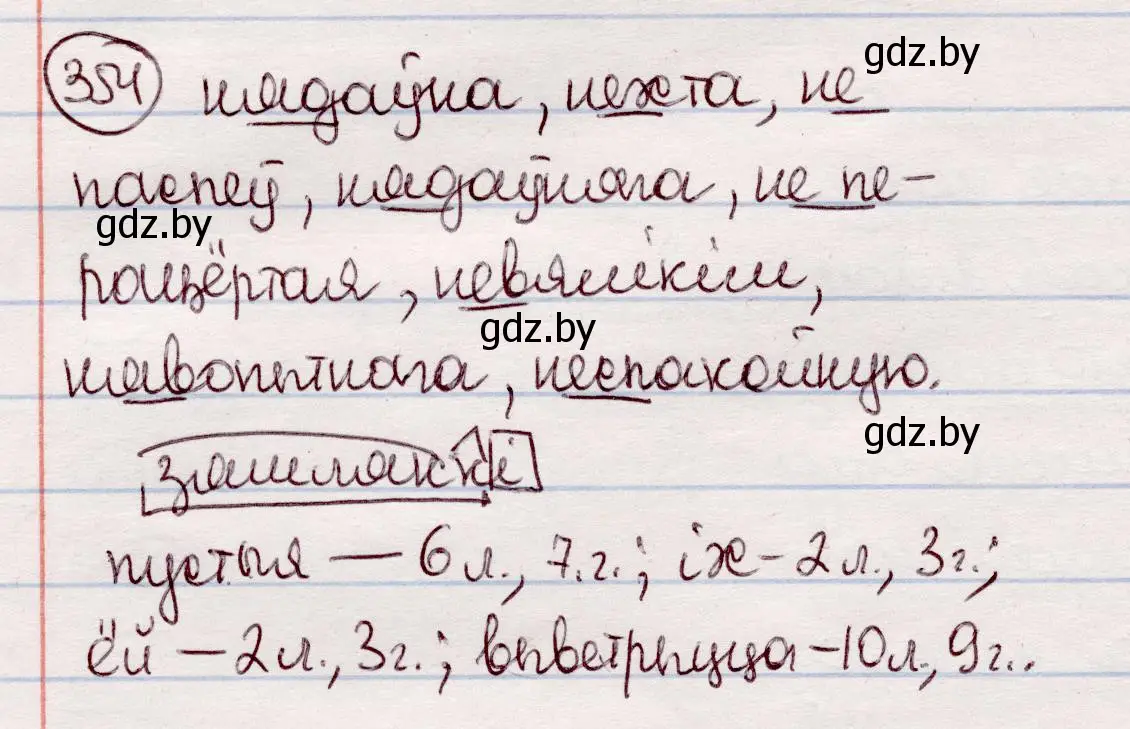 354 нядаўна, нехта, не gdz.by
паспеў, нядаўняга, не пе-
gdz.by
рацёртая, невялікім,
gdz.by
навопытнага, неспакойную.
gdz.by
пустыя — 6 л., 7.г.; іх - 2 л., 3 г.;
ёй — 2 л., 3 г.; выветрыцца - 10 л., 9 г..